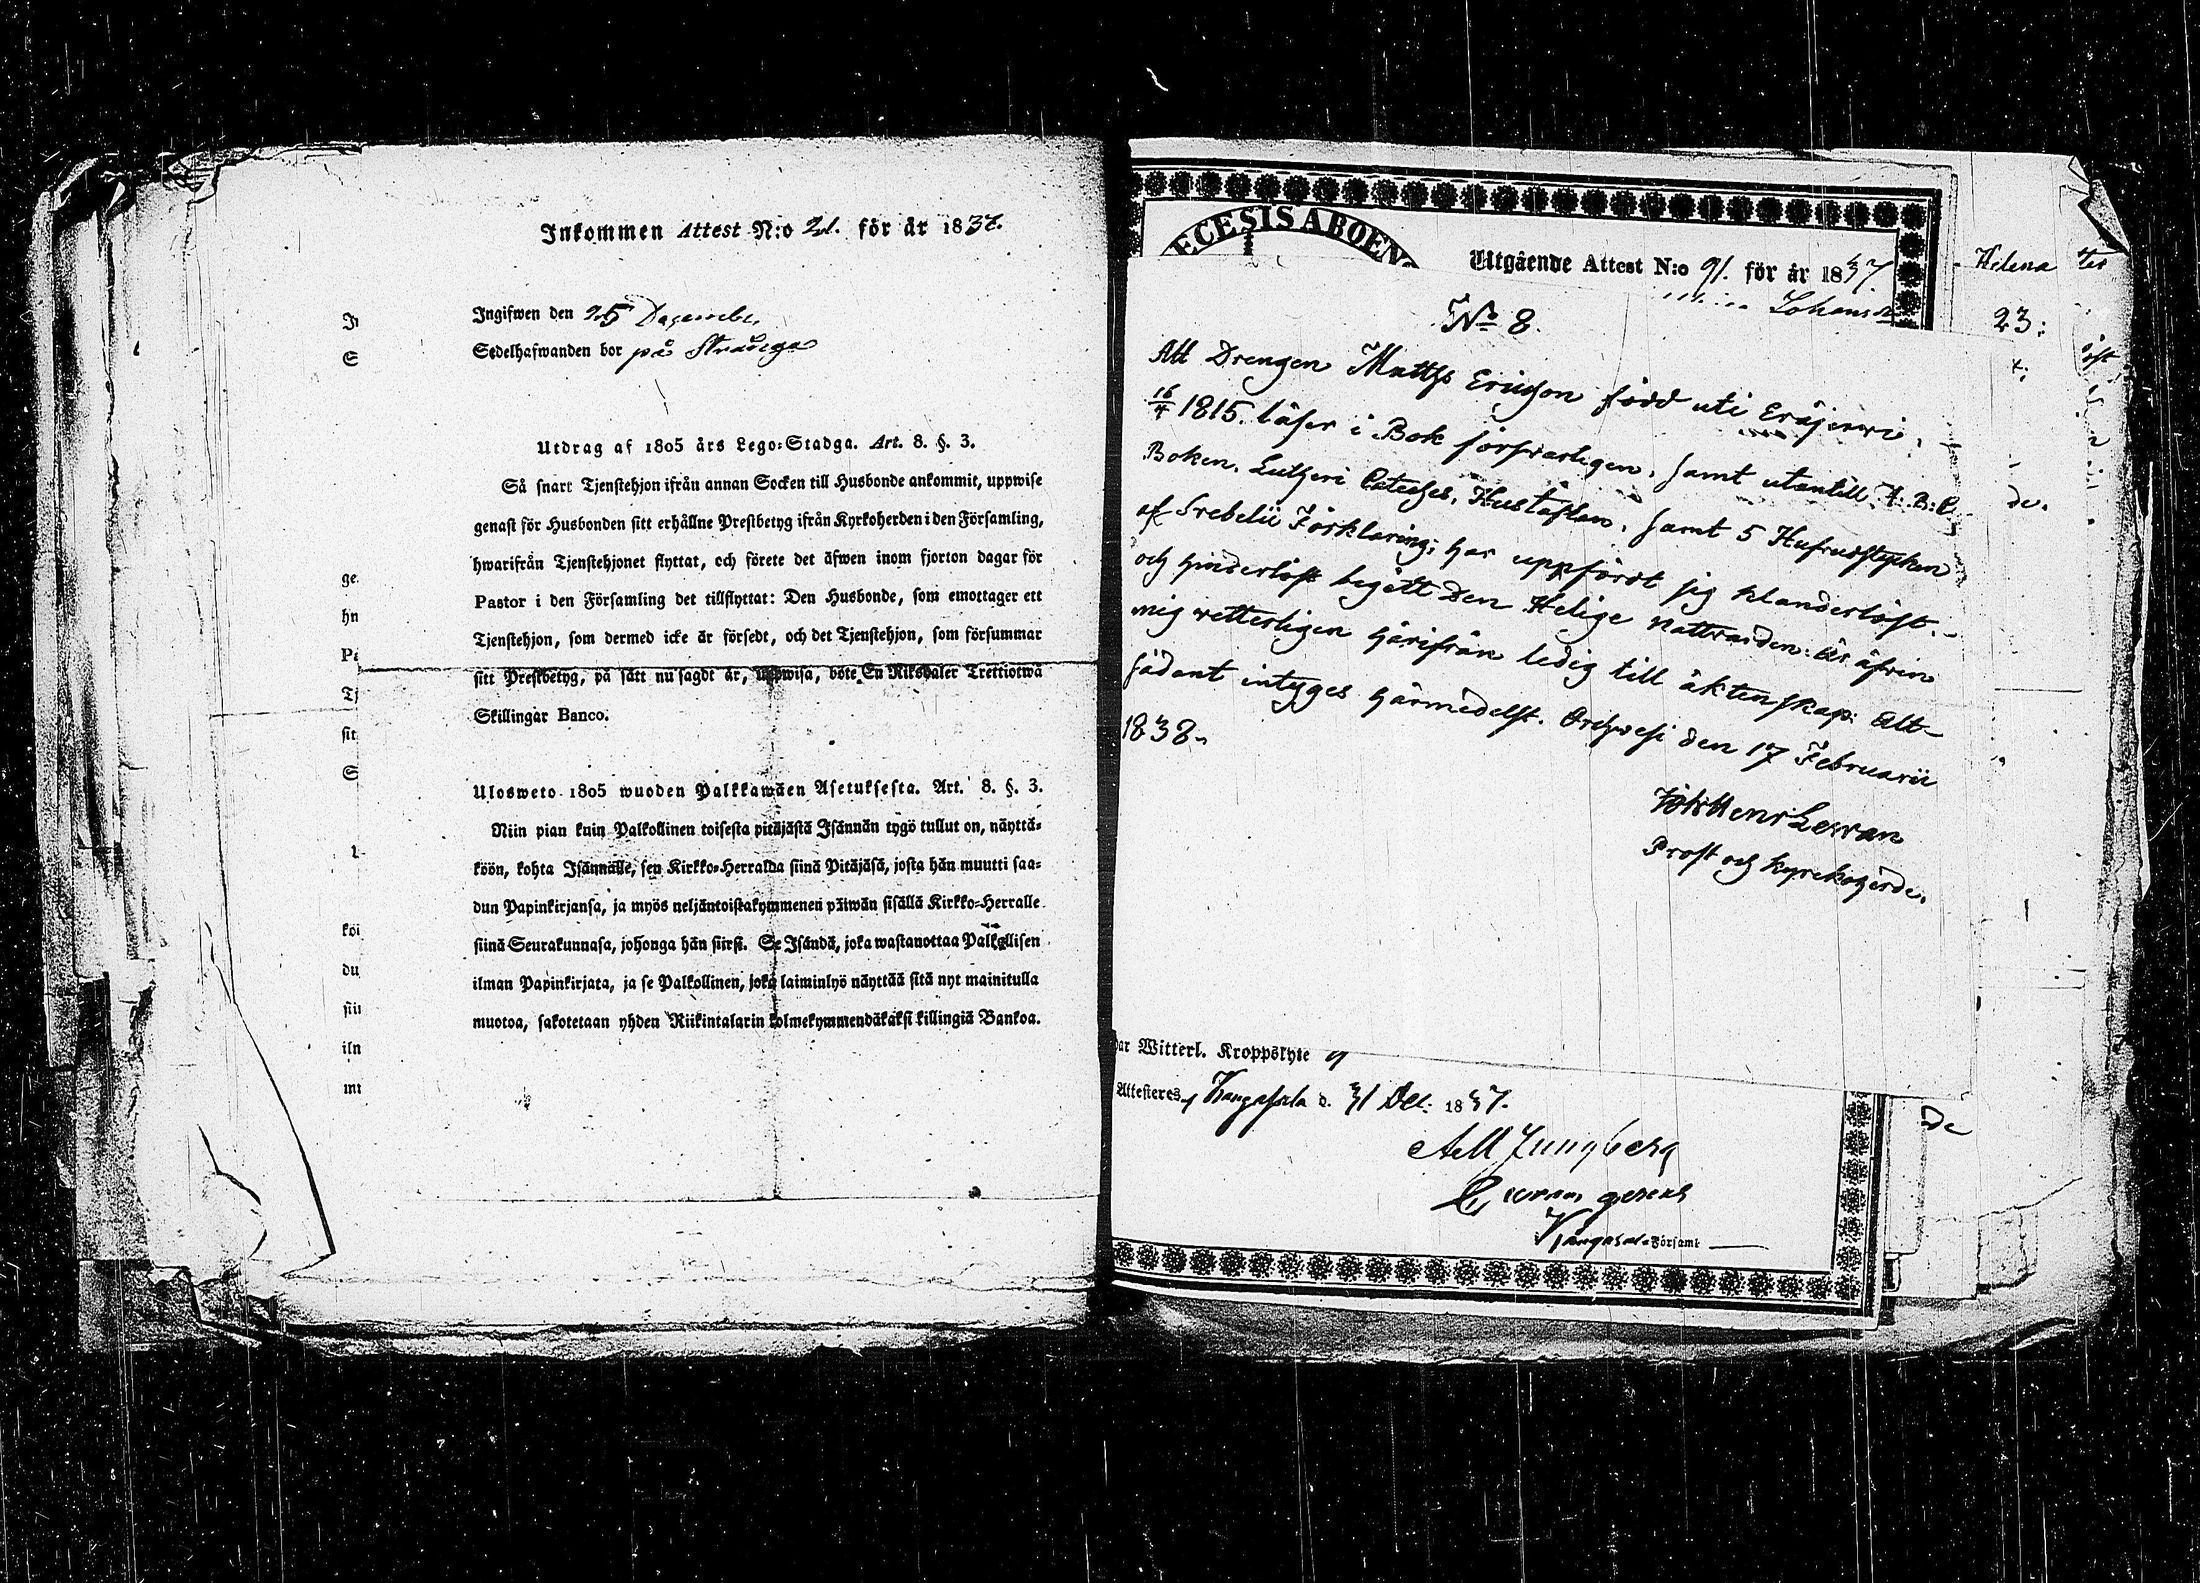 Inkommen Attest N:o 21. för år 1837.
Ingifwen den 25 December
Sedelhafwanden bor på
Utdrag af 1805 års Lego-Stadga. Art. 8. §. 3.
Så snart Tjenstehjon ifrån annan Socken till Husbonde ankommit, uppwise
genast för Husbonden sitt erhållne Prestbetyg ifrån Kyrkoherden i den Församling,
hwarifrån Tjenstehjonet flyttat, och förete det äfwen inom fjorton dagar för
Pastor i den Församling det tillflyttat: Den Husbonde, som emottager ett
Tjenstehjon, som dermed icke är försedt, och det Tjenstehjon, som försummar
sitt Prestbetyg, på sätt nu sagdt är, uppwisa, böte En Riksdaler Trettiotwå
Skillingar Banco.
Ulosweto 1805 wuoden Palkkawäen Asetuksesta. Art. 8. §. 3.
Niin pian kuin Palkollinen toisesta pitäjästä Isännän tygö tullut on, näyttä-
köön, kohta Isännälle, sen Kirkko-Herralda siinä Pitäjäsä, josta hän muutti saa-
dun Papinkirjansa, ja myös neljäntoistakymmenen päiwän sisällä Kirkko-Herralle
siinä Seurakunnasa, johonga hän siirsi. Se Isändä, joka wastanottaa Palkollisen
ilman Papinkirjata, ja se Palkollinen, joka laiminlyö näyttää sitä nyt mainitulla
muotoa, sakotetaan yhden Riikintalarin kolmekymmendäkaksi killingiä Bankoa.
ECESIS ABOEN
Utgående Attest N:o 91. för år 1837.
No 8.
Att Drengen Matths Ericson född uti Eräjerwi
16/4 1815. läser i Bok försvarligen, samt utantill A.B.C
Boken, Lutheri Cateches, Hustaflan, samt 5 Hufvudstycken
af Svebelii Förklaring; har uppfördt sig klanderlöst
och hinderlöst begått Den Helige Nattvarden: är äfven
mig vetterligen härifrån ledig till äktenskap: Allt-
sådant intyges härmedelst. Orihvesi den 17 Februarii
1838.
Prost och Kyrckoherde.
ar Witterl. Kroppslyte
Attesteres, Kangasala d. 31 Dec. 1837.
Kangasala Församl
Helena
23:
de.
De